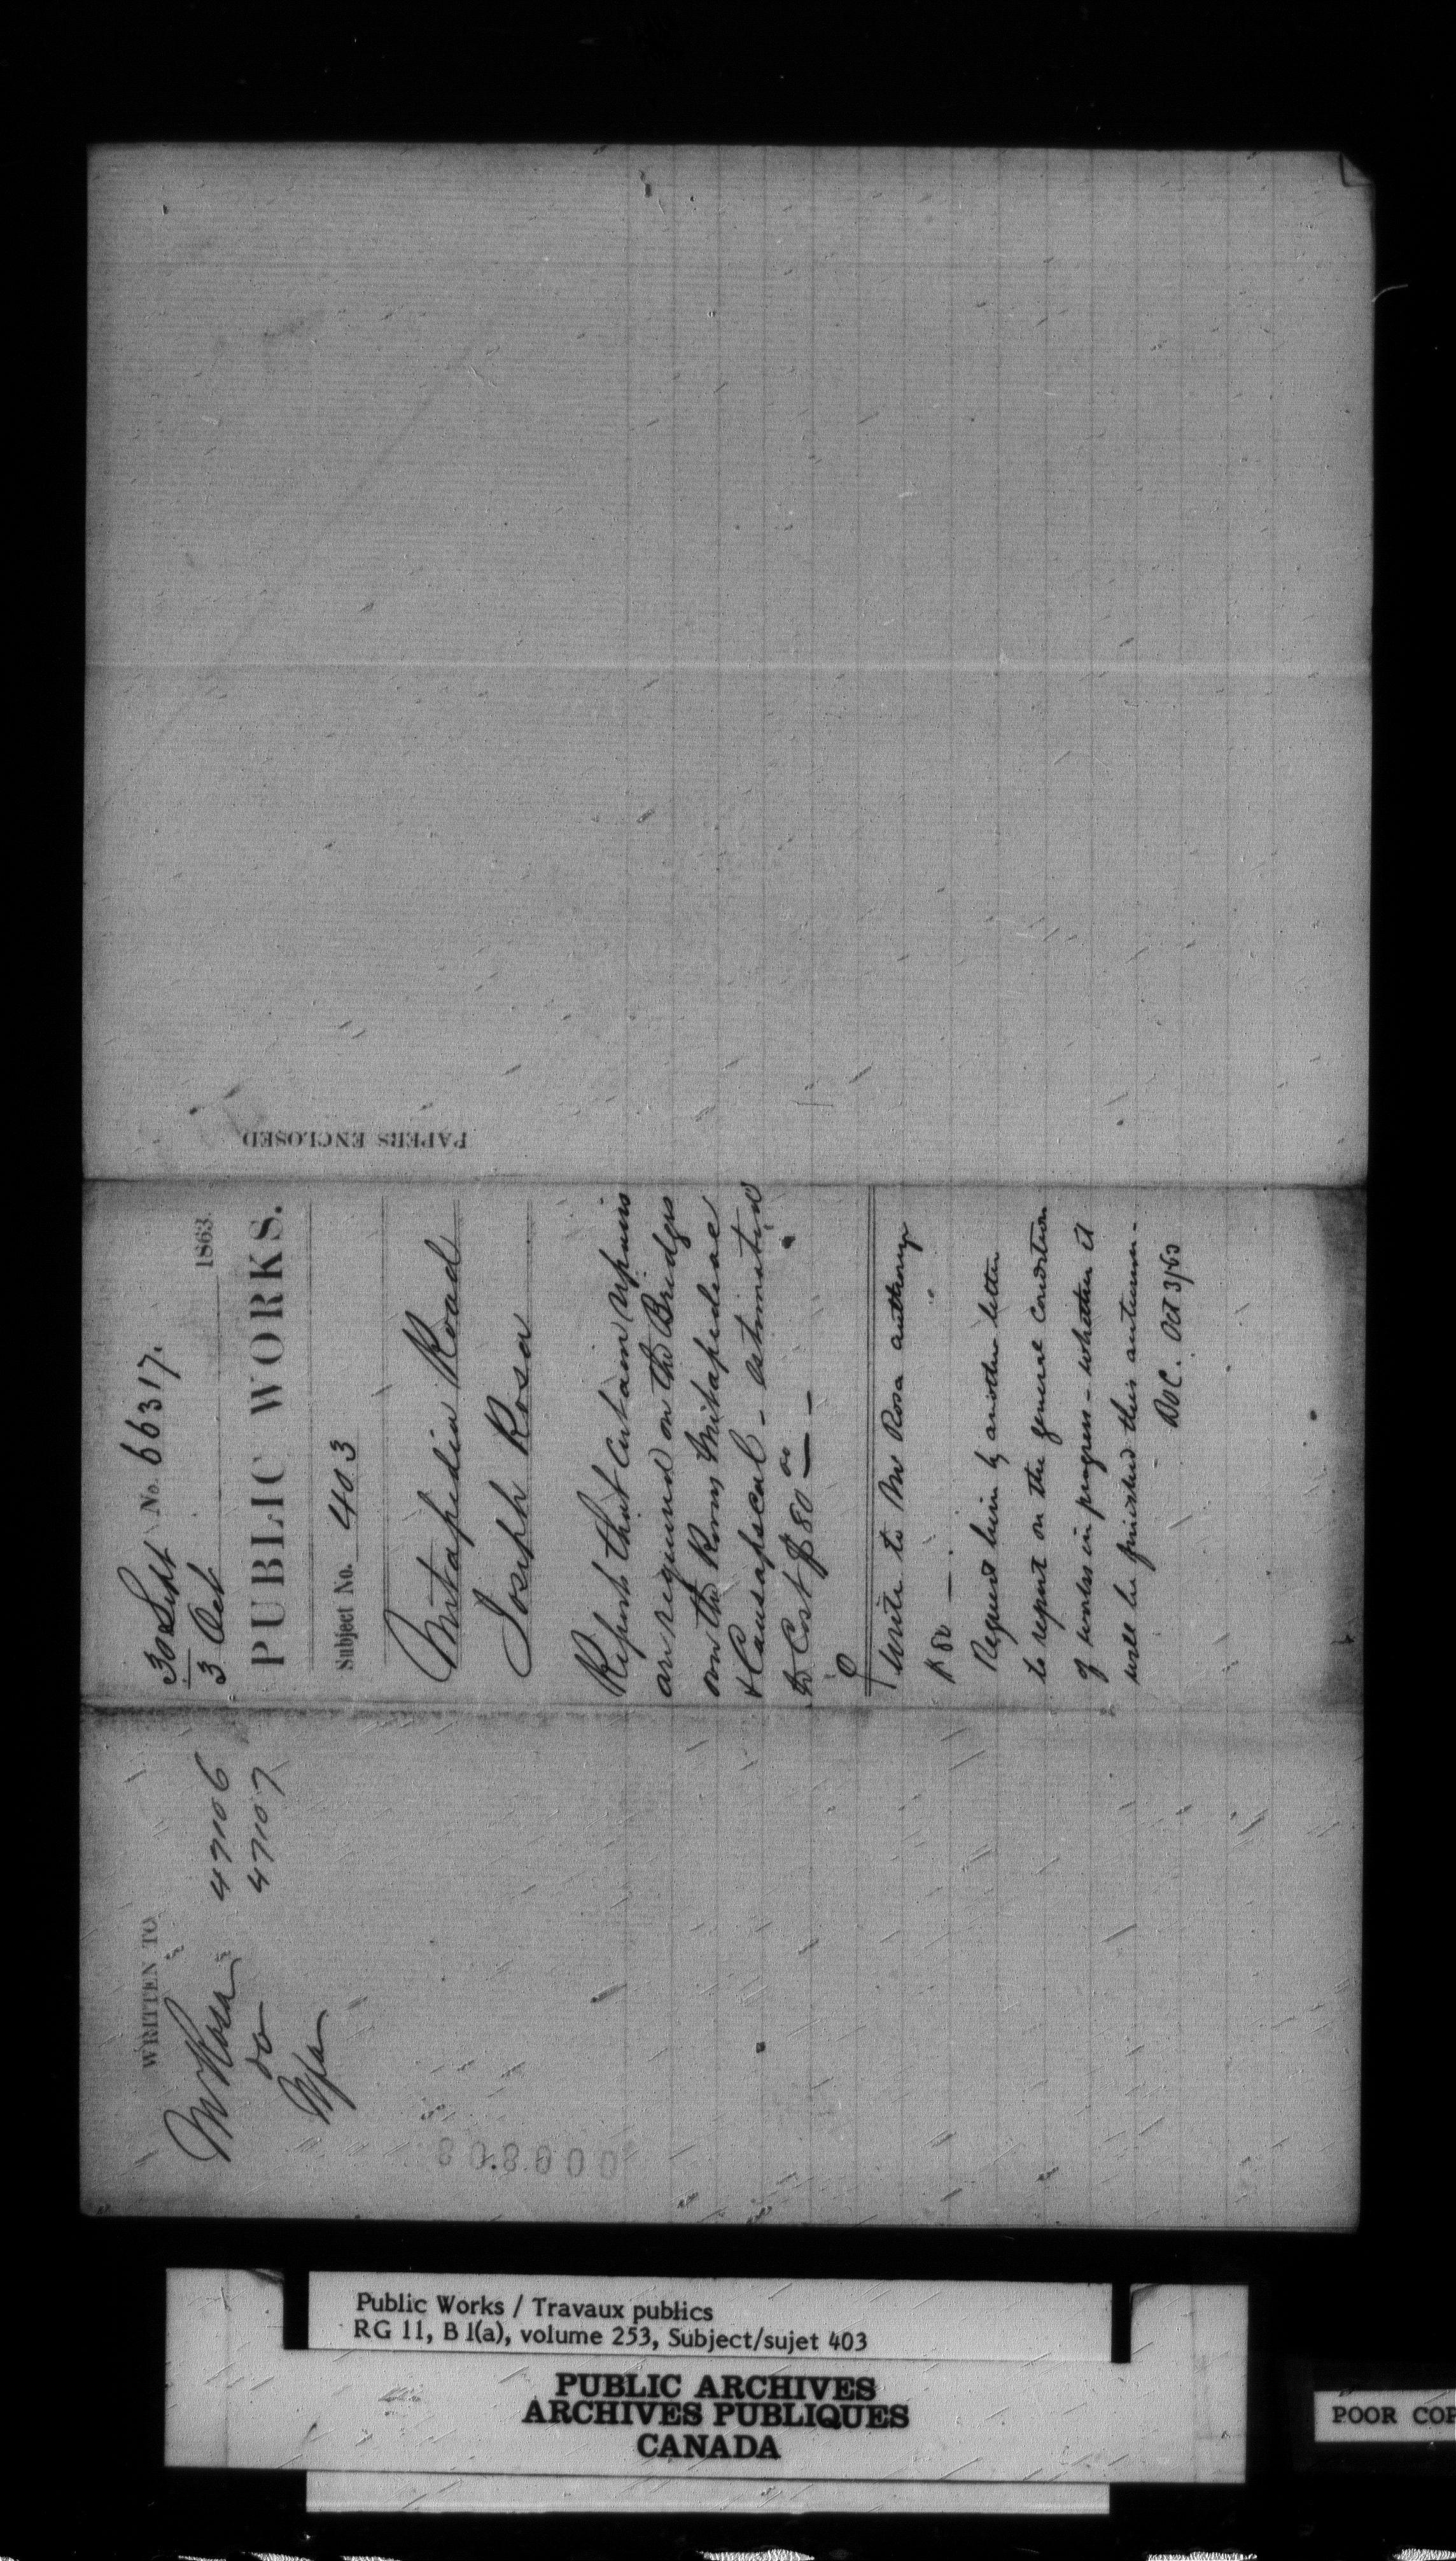 30 Sept No. 66317.
3 Oct 1863.
PUBLIC WORKS.
Subject No. 403
Metapedia Road
Joseph Rosa
Reports that certain repairs
are required on the Bridges
over the Rivers Metapediac
& Causapscal - estimated
to Cost $80 00
Write to Mr Rosa authority
$80 —.
Request him by another letter
to report on the general condition
of works in progress - whether it
will be finished this autumn -
Oct 3/63
PAPERS ENCLOSED
WRITTEN TO
Mr Rosa 47106
do 47107
000808
Public Works / Travaux publics
RG 11, B 1(a), volume 253, Subject/sujet 403
PUBLIC ARCHIVES
ARCHIVES PUBLIQUES
CANADA
POOR COP